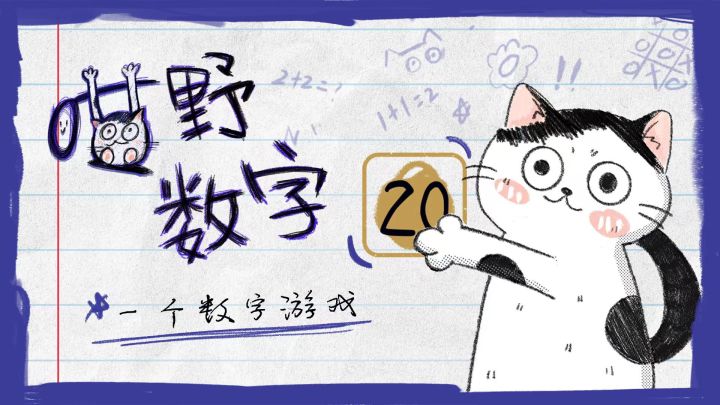 喵野
数字
2+2=
1+1=2
!!
20
一个数字游戏